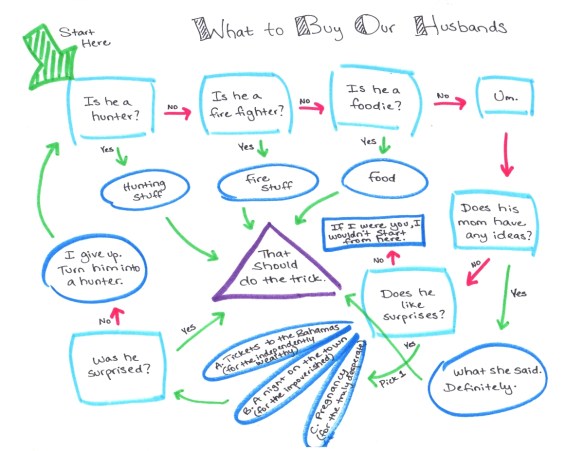 What to Buy Our Husbands
Start
Here
Is he a
hunter?
No
Is he a
fire fighter?
No
Is he a
foodie?
No
Um.
Yes
Yes
Yes
Hunting
stuff
fire
stuff
food
Does his
mom have
any ideas?
If I were you, I
wouldn't start
from here.
That
should
do the trick.
I give up.
Turn him into
a hunter.
No
No
Does he
like
surprises?
Yes
No
Was he
surprised?
Yes
A. Tickets to the Bahamas
(for the independently
wealthy)
B. A night on the town
(for the impoverished)
C. Pregnancy
(for the truly desperate)
Yes
Pick 1
What she said.
Definitely.